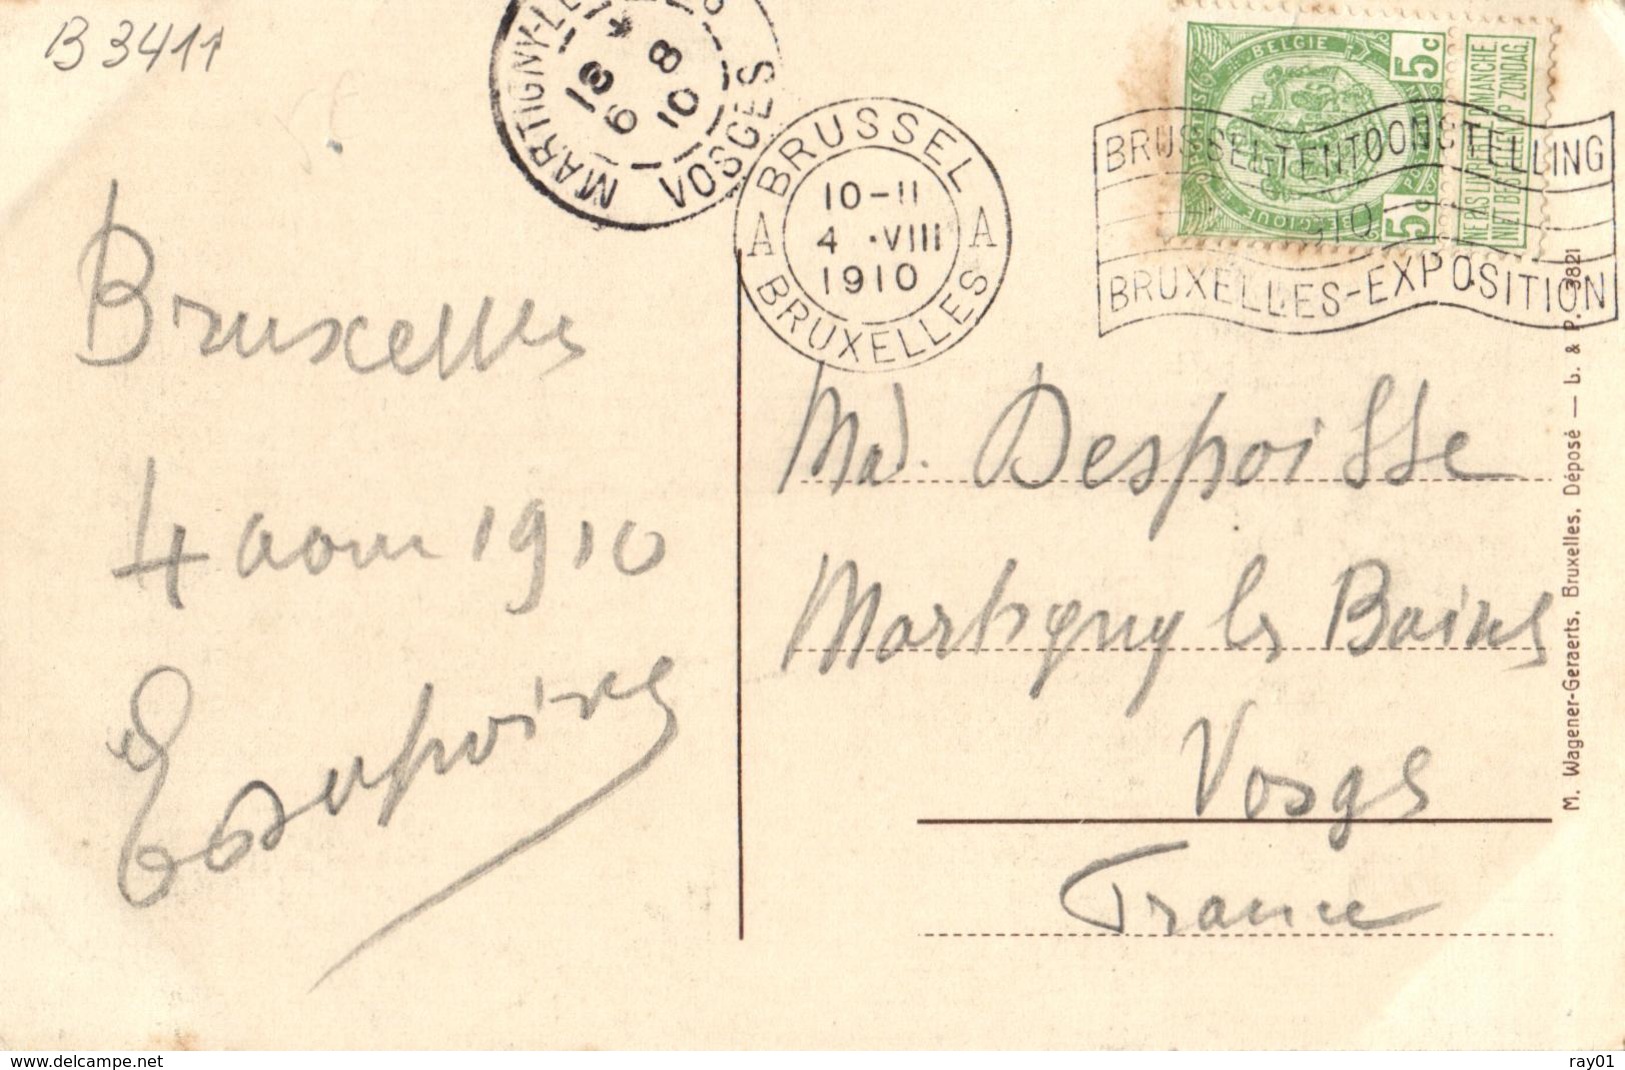 B 3411
MARTIGNY-LE
18
6 8
10
VOSGES
BRUSSEL
10-11
A 4 ·VIII A
1910
BRUXELLES
BELGIE
5c
5c
NE PAS LIVRER LE DIMANCHE
NIET BESTELLEN OP ZONDAG.
BRUSSEL-TENTOONSTELLING
BRUXELLES-EXPOSITION
Bruxelles
4 aout 1910
Md. Despoisse
Martigny les Bains
Vosges
France
M. Wagener-Geraerts, Bruxelles, Déposé — L. & P. 3821
www.delcampe.net
ray01